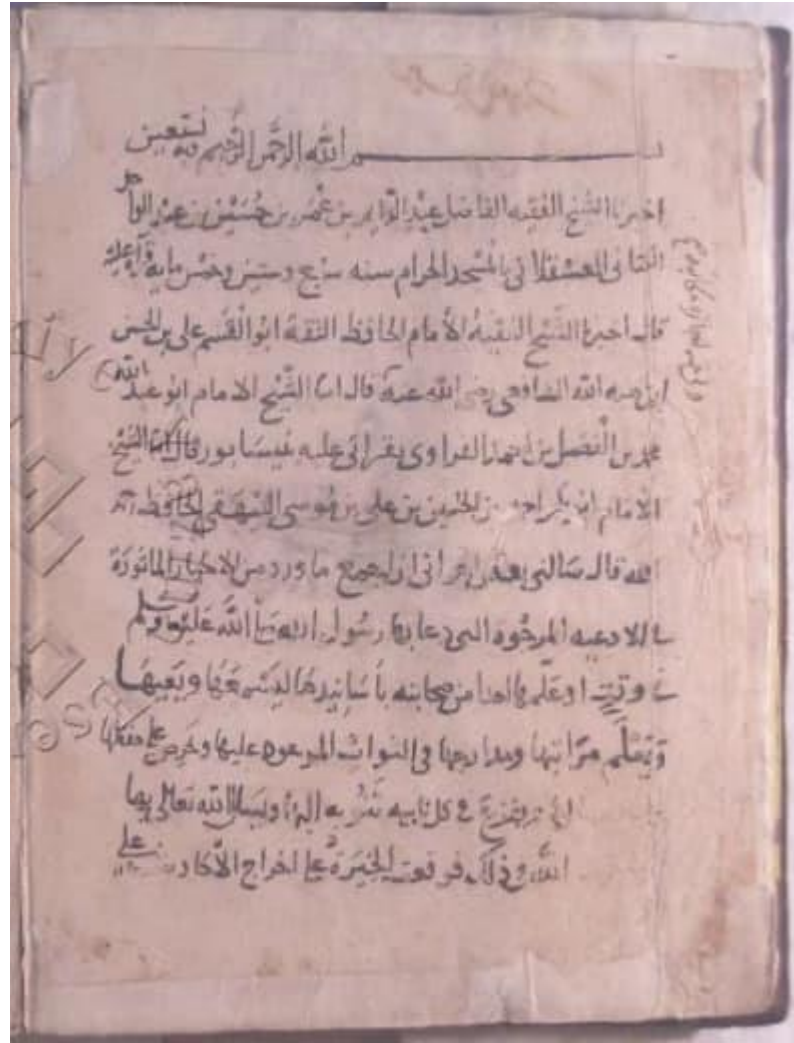 بسم الله الرحمن الرحيم وبه نستعين
اخبرنا الشيخ الفقيه الفاضل عبد الدايم بن عمر بن حسين بن عبد الواحد
الكنانى العسقلانى بالمسجد الحرام سنه سبع وستين وخمس مايه قراءة عليه
قال اخبرنا الشيخ الفقيه الأمام الحافظ الثقة ابو القسم على بن الحسن
ابن هبه الله الشافعى رضى الله عنه قال انا الشيخ الامام ابو عبد الله
محمد بن الفضل بن احمد الفراوى بقراتى عليه بنيسابور قال انا الشيخ
الامام ابو بكر احمد بن الحسين بن على بن موسى البيهقى الحافظ رحمه
الله قال سالنى بعض اخوانى ان اجمع ما ورد من الاخبار الماثورة
فى الادعيه المرجوه التى دعا بها رسول الله صلى الله عليه وسلم
فى وقت او علمها احدا من صحابته بأسانيدها ليسمعها ويعيها
ويتعلم مراتبها ومدارجها فى الثواب الموعود عليها ويحرص على حفظها
لان يفزع فى كل نايبه تنزل به اليها ويسل الله تعالى بها
الله فى ذلك فوقعت الخيرة على اخراج الأحاديث على